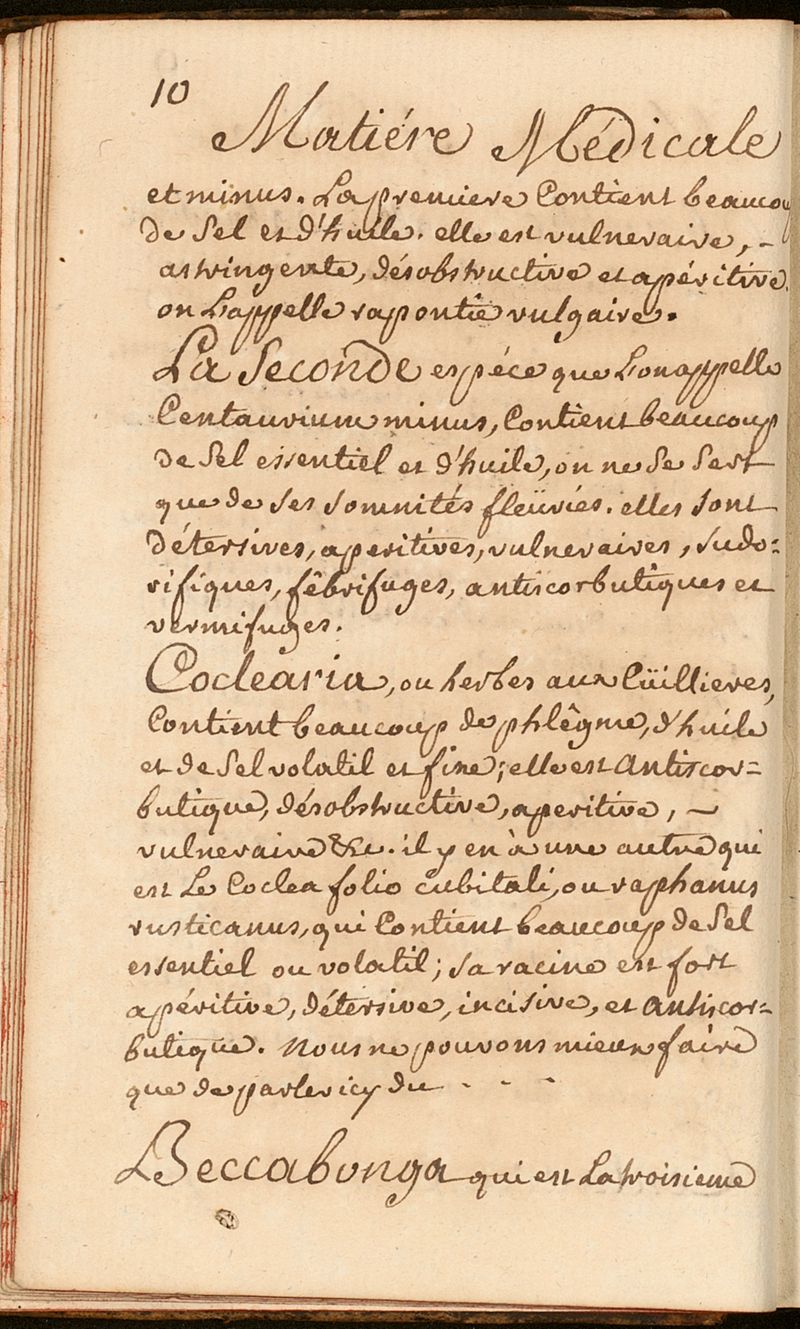 10
Matiére Médicale
et minus. La premiere Contient beaucou
de Sel et d'huile. elle est vulneraire, -
astringente, désobstructive et apéritive.
on L'appelle rapontie vulgaire.
La Seconde espéce que L'on appelle
Centaurium minus, Contient beaucoup
de Sel essentiel et d'huile, on ne Se Sert
que de Ses somnités fleüries. elles sont
détersives, aperitives, vulneraires, Sudo=
rifiques, fêbrifuges, antiscorbutiques et
vermifuges.
Coclearia, ou herbes aux Cüillieres,
Contient beaucoup de phlêgme, d'huile
et de Sel volatil et fixe; elle est Antiscor=
butique, désobstructive, aperitive, -
vulneraire &c. il y en à une autre qui
est Le Coclea folio cubitali, ou raphanus
rusticanus, qui Contient beaucoup de Sel
essentiel ou volatil; sa racine est fort
apéritive, détersive, incisive, et Antiscor=
butique. Nous ne pouvons mieux faire
que de parler icy du - - -
Beccabonga qui est La troisieme